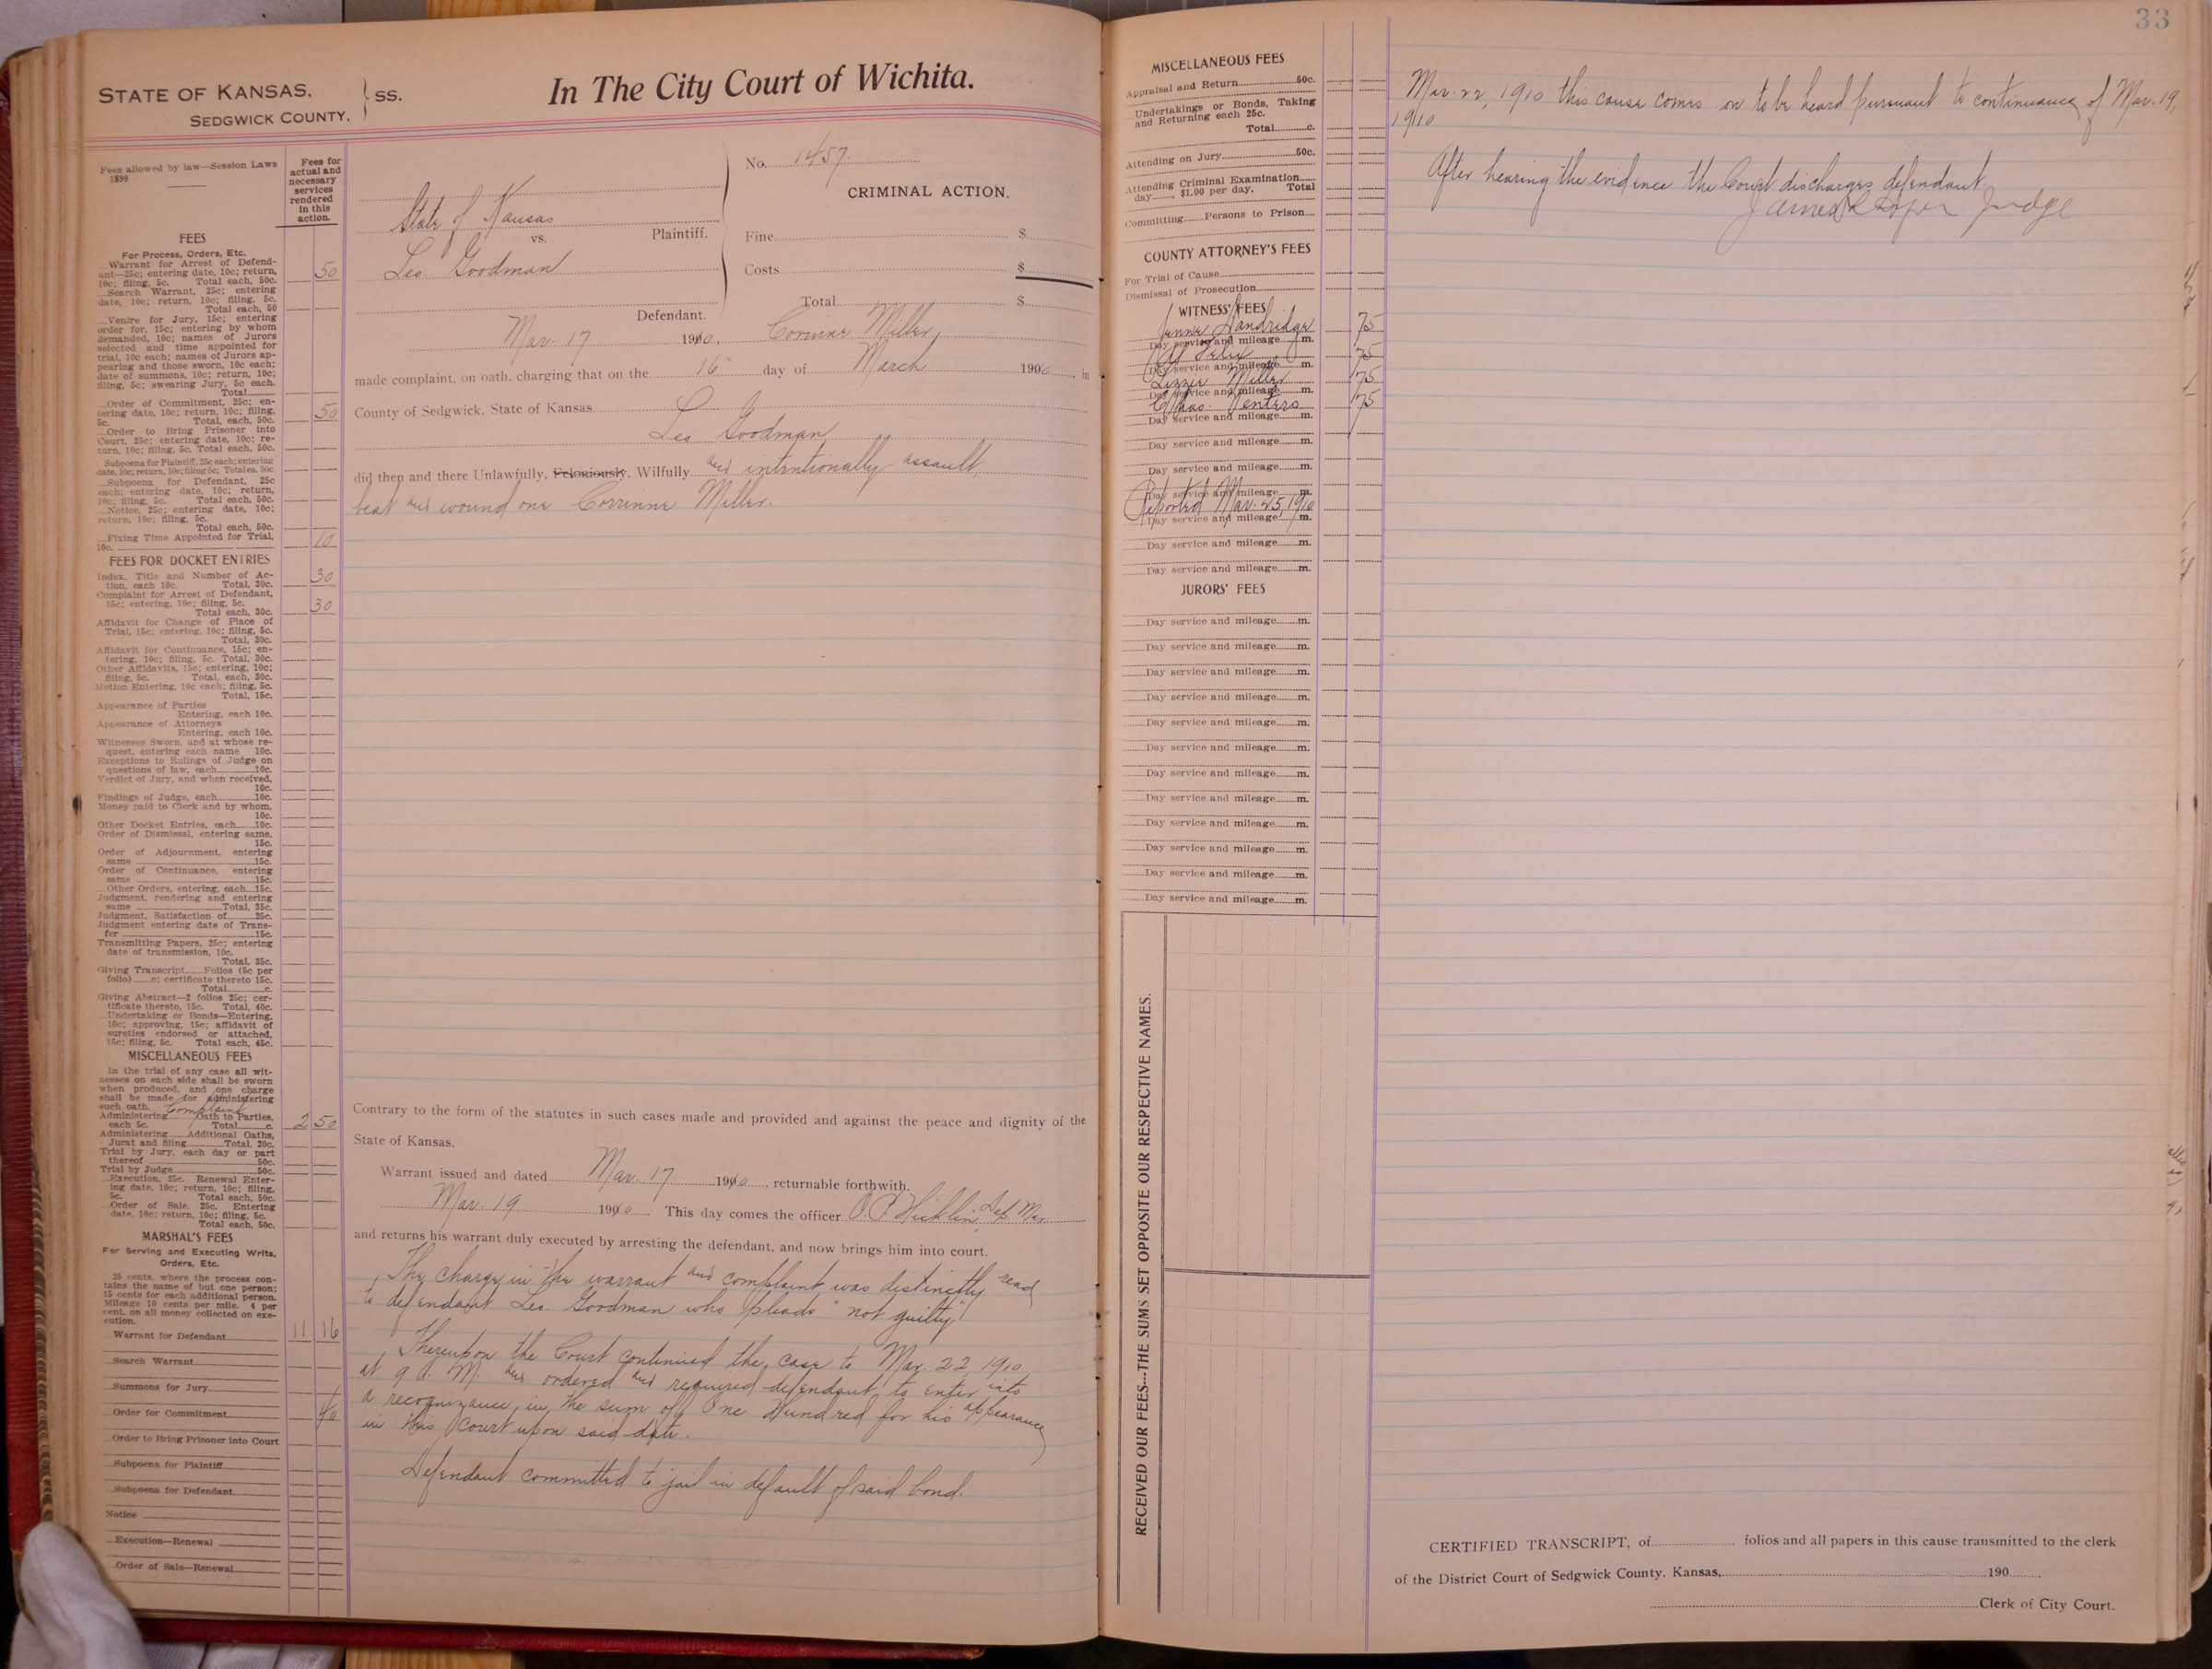 STATE OF KANSAS,
SEDGWICK COUNTY, } SS.
In The City Court of Wichita.
Fees allowed by law—Session Laws
1899
Fees for
actual and
necessary
services
rendered
in this
action.
FEES
For Process, Orders, Etc.
Warrant for Arrest of Defend-
ant—25c; entering date, 10c; return,
10c; filing, 5c. Total each, 50c. 50
Search Warrant, 25c; entering
date, 10c; return, 10c; filing, 5c.
Total each, 50
Venire for Jury, 15c; entering
order for, 15c; entering by whom
demanded, 10c; names of Jurors
selected and time appointed for
trial, 10c each; names of Jurors ap-
pearing and those sworn, 10c each;
date of summons, 10c; return, 10c;
filing, 5c; swearing Jury, 5c each.
Total
Order of Commitment, 25c; en-
tering date, 10c; return, 10c; filing,
5c. Total, each, 50c. 50
Order to Bring Prisoner into
Court, 25c; entering date, 10c; re-
turn, 10c; filing, 5c. Total each, 50c.
Subpoena for Plaintiff, 25c each; entering
date, 10c; return, 10c; filing 5c; Total ea. 50c
Subpoena for Defendant, 25c
each; entering date, 10c; return,
10c; filing, 5c. Total each, 50c.
Notice, 25c; entering date, 10c;
return, 10c; filing, 5c.
Total each, 50c.
Fixing Time Appointed for Trial,
10c. 10
FEES FOR DOCKET ENTRIES
Index, Title and Number of Ac-
tion, each 10c. Total, 30c. 30
Complaint for Arrest of Defendant,
15c; entering, 10c; filing, 5c.
Total each, 30c. 30
Affidavit for Change of Place of
Trial, 15c; entering, 10c; filing, 5c.
Total, 30c.
Affidavit for Continuance, 15c; en-
tering, 10c; filing, 5c. Total, 30c.
Other Affidavits, 15c; entering, 10c;
filing, 5c. Total, each, 30c.
Motion Entering, 10c each; filing, 5c.
Total, 15c.
Appearance of Parties
Entering, each 10c.
Appearance of Attorneys
Entering, each 10c.
Witnesses Sworn, and at whose re-
quest, entering each name 10c.
Exceptions to Rulings of Judge on
questions of law, each 10c.
Verdict of Jury, and when received,
10c.
Findings of Judge, each 10c.
Money paid to Clerk and by whom,
10c.
Other Docket Entries, each 10c.
Order of Dismissal, entering same,
15c.
Order of Adjournment, entering
same 15c.
Order of Continuance, entering
same 15c.
Other Orders, entering, each 15c.
Judgment, rendering and entering
same Total, 35c.
Judgment, Satisfaction of 25c.
Judgment entering date of Trans-
fer 15c.
Transmitting Papers, 25c; entering
date of transmission, 10c.
Total, 35c.
Giving Transcript Folios (5c per
folio) c; certificate thereto 15c.
Total c.
Giving Abstract—2 folios 25c; cer-
tificate thereto, 15c. Total, 40c.
Undertaking or Bonds—Entering,
10c; approving, 15c; affidavit of
sureties endorsed or attached,
15c; filing, 5c. Total each, 45c.
MISCELLANEOUS FEES
In the trial of any case all wit-
nesses on each side shall be sworn
when produced, and one charge
shall be made for administering
such oath. Complaint
Administering Oath to Parties,
each 5c. Total c. 2 50
Administering Additional Oaths,
Jurat and filing Total, 20c.
Trial by Jury, each day or part
thereof 50c.
Trial by Judge 50c.
Execution, 25c. Renewal Enter-
ing date, 10c; return, 10c; filing,
5c. Total each, 50c.
Order of Sale, 25c. Entering
date, 10c; return, 10c; filing, 5c.
Total each, 50c.
MARSHAL'S FEES
For Serving and Executing Writs,
Orders, Etc.
25 cents, where the process con-
tains the name of but one person;
15 cents for each additional person.
Mileage 10 cents per mile. 4 per
cent. on all money collected on exe-
cution.
Warrant for Defendant 11 16
Search Warrant
Summons for Jury
Order for Commitment 40
Order to Bring Prisoner into Court
Subpoena for Plaintiff
Subpoena for Defendant
Notice
Execution—Renewal
Order of Sale—Renewal
State of Kansas
vs. Plaintiff.
Leo. Goodman
Defendant.
No. 1457.
CRIMINAL ACTION.
Fine $
Costs $
Total $
Mar. 17 1910., Corrinne Miller,
made complaint, on oath, charging that on the 16 day of March 1900, in
County of Sedgwick, State of Kansas
Leo Goodman
did then and there Unlawfully, Feloniously, Wilfully and intentionally assault,
beat and wound one Corrinne Miller.
Contrary to the form of the statutes in such cases made and provided and against the peace and dignity of the
State of Kansas.
Warrant issued and dated Mar. 17 1910, returnable forthwith.
Mar. 19 1910. This day comes the officer O. P. Hicklin, Dep Mar
and returns his warrant duly executed by arresting the defendant, and now brings him into court.
The charge in the warrant and complaint was distinctly read
to defendant Leo. Goodman who pleads "not guilty"
Thereupon the Court continued the case to Mar. 22, 1910
at 9 A. M. and ordered and required defendant to enter into
a recognizance in the sum of One Hundred for his appearance
in this Court upon said date.
Defendant committed to jail in default of said bond.
33
MISCELLANEOUS FEES
Appraisal and Return 50c.
Undertakings or Bonds, Taking
and Returning each 25c.
Total c.
Attending on Jury 50c.
Attending Criminal Examination
day $1.00 per day. Total
Committing Persons to Prison
COUNTY ATTORNEY'S FEES
For Trial of Cause
Dismissal of Prosecution
WITNESS' FEES
Jennie Dandridge 75
Day service and mileage m.
75
Day service and mileage m.
Lizzie Miller 75
Day service and mileage m.
Chas. Venters 75
Day service and mileage m.
Day service and mileage m.
Day service and mileage m.
Day service and mileage m.
Reported Mar. 25, 1910
Day service and mileage m.
Day service and mileage m.
Day service and mileage m.
JURORS' FEES
Day service and mileage m.
Day service and mileage m.
Day service and mileage m.
Day service and mileage m.
Day service and mileage m.
Day service and mileage m.
Day service and mileage m.
Day service and mileage m.
Day service and mileage m.
Day service and mileage m.
Day service and mileage m.
Day service and mileage m.
RECEIVED OUR FEES---THE SUMS SET OPPOSITE OUR RESPECTIVE NAMES.
Mar. 22, 1910 this cause comes on to be heard pursuant to continuance of Mar. 19,
1910
After hearing the evidence the Court discharges defendant.
James Judge
CERTIFIED TRANSCRIPT, of folios and all papers in this cause transmitted to the clerk
of the District Court of Sedgwick County, Kansas, 190
Clerk of City Court.